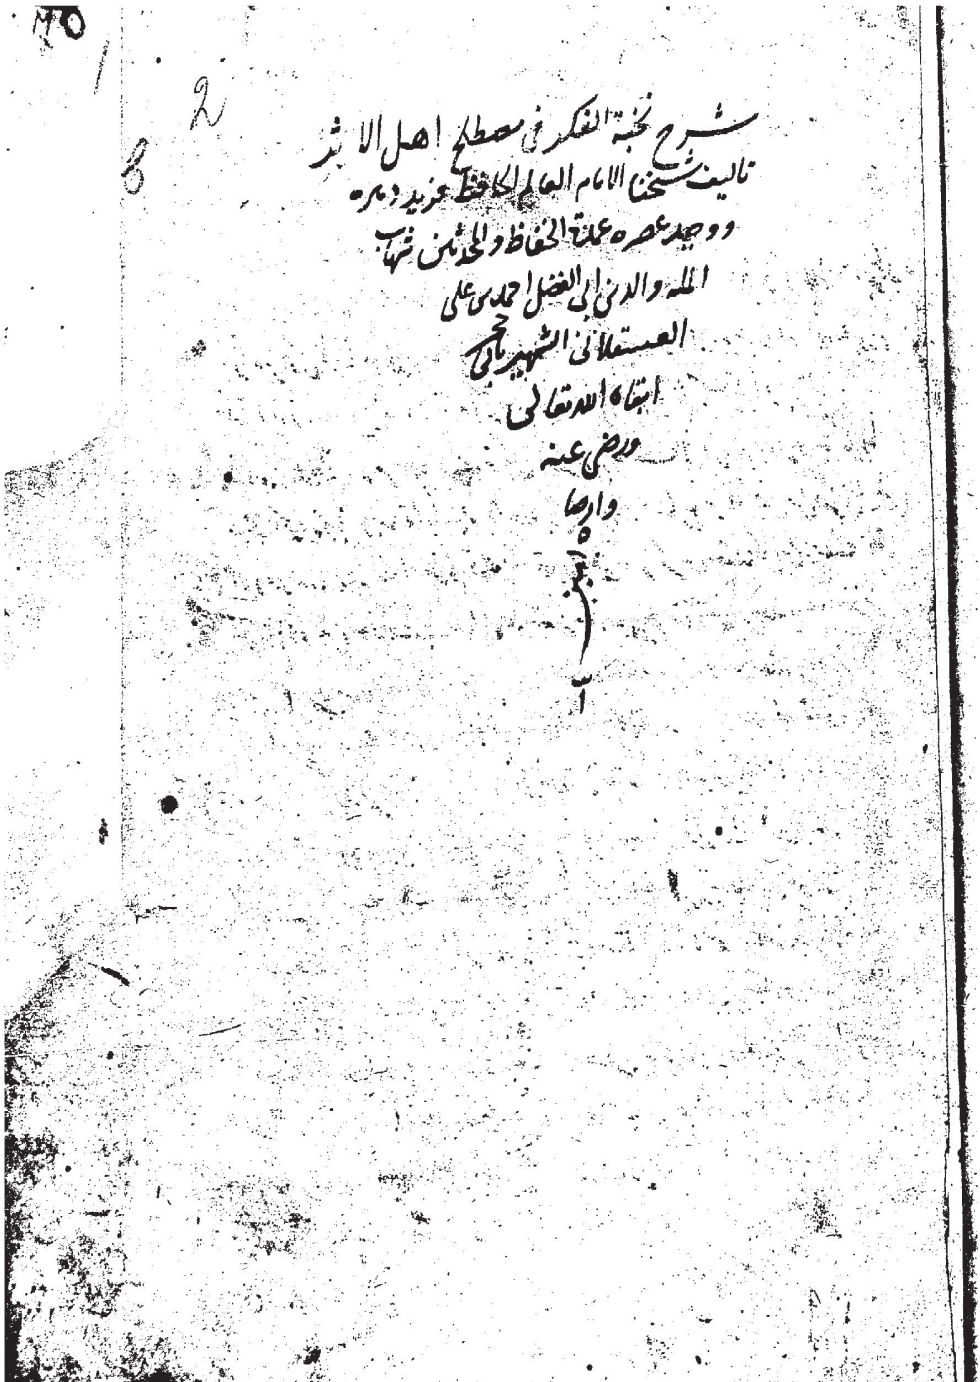 شرح نخبة الفكر في مصطلح اهل الاثر
تاليف شيخنا الامام العالم الحافظ فريد دهره
ووحيد عصره عمدة الحفاظ والمحدثين شهاب
المله والدين ابي الفضل احمد بن علي
العسقلاني الشهير بابن حجر
ابقاه الله تعالى
ورضي عنه
وارضا
ه امين
2
8